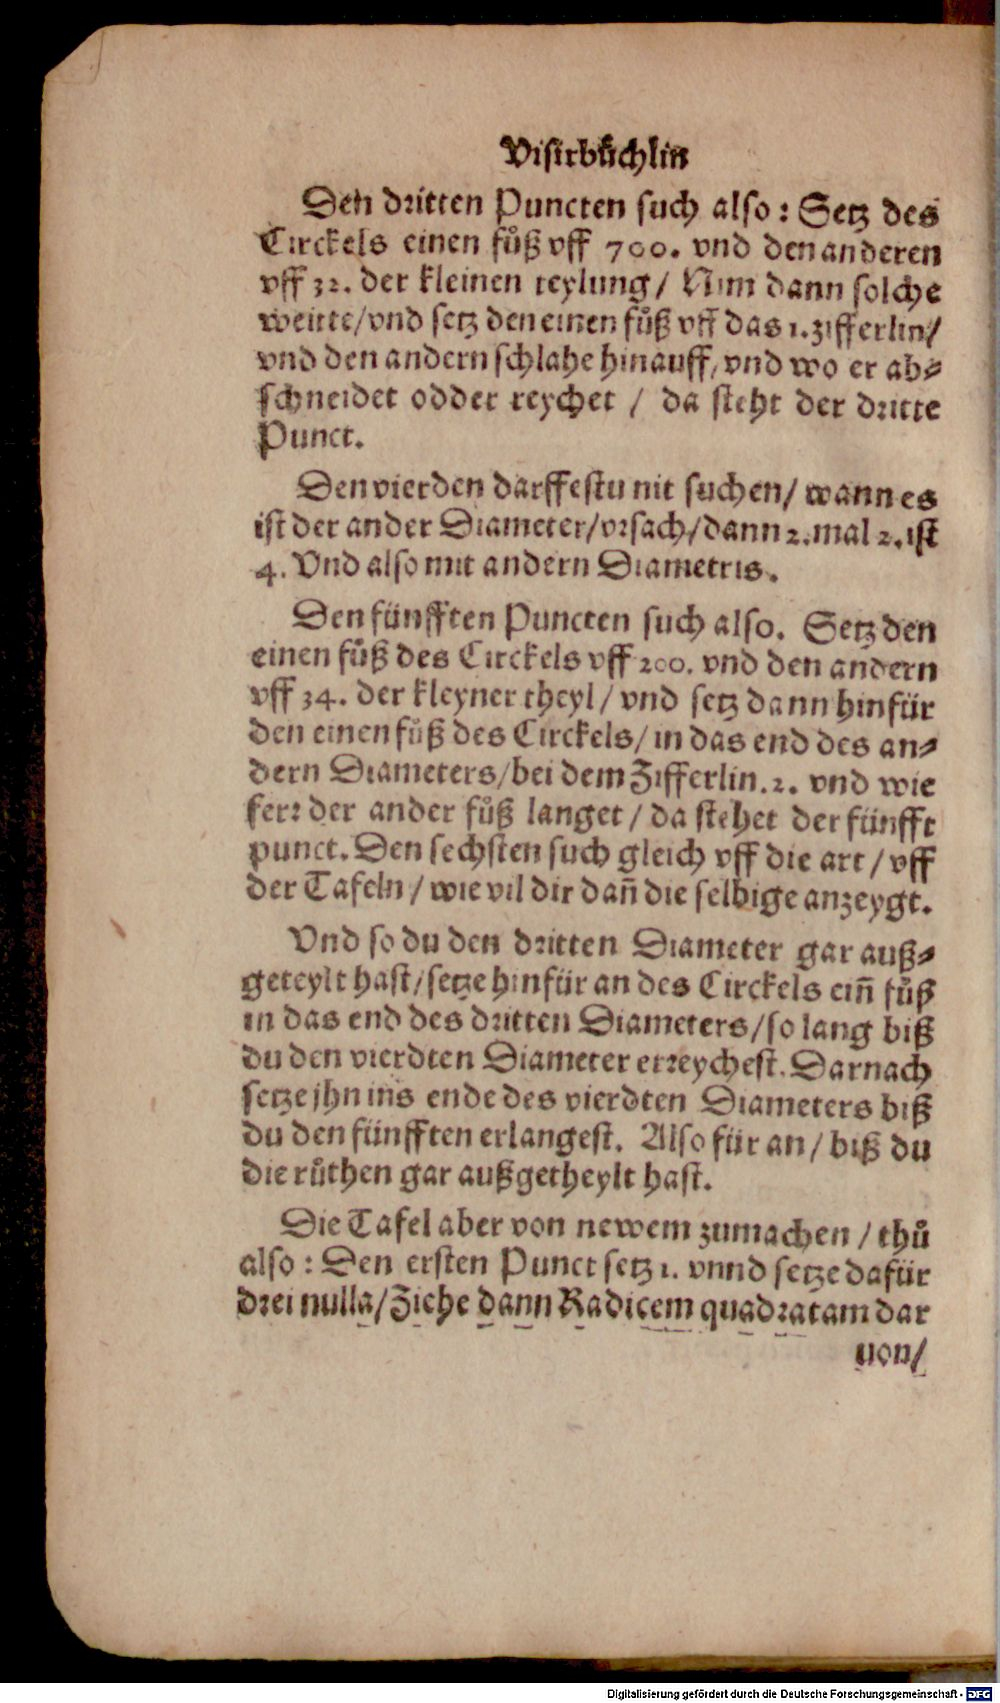 Visirbůchlin
Den dritten Puncten such also : Setz des
Circkels einen fůß vff 700. vnd den anderen
vff 32. der kleinen teylung / Nim dann solche
weitte/vnd setz den einen fůß vff das 1. zifferlin/
vnd den andern schlahe hinauff, vnd wo er ab⸗
schneidet odder reychet / da steht der dritte
Punct.
Den vierden darffestu nit suchen/ wann es
ist der ander Diameter/vrsach/dann 2. mal 2. ist
4. Vnd also mit andern Diametris.
Den fünfften Puncten such also. Setz den
einen fůß des Circkels vff 200. vnd den andern
vff 34. der kleyner theyl / vnd setz dann hinfür
den einen fůß des Circkels/ in das end des an⸗
dern Diameters/bei dem Zifferlin. 2. vnd wie
ferr der ander fůß langet / da stehet der fünfft
punct. Den sechsten such gleich vff die art / vff
der Tafeln / wie vil dir dañ die selbige anzeygt.
Vnd so du den dritten Diameter gar auß⸗
geteylt hast/setze hinfür an des Circkels eiñ fůß
in das end des dritten Diameters/so lang biß
du den vierdten Diameter erreychest. Darnach
setze jhn ins ende des vierdten Diameters biß
du den fünfften erlangest. Also für an / biß du
die růthen gar außgetheylt hast.
Die Tafel aber von newem zumachen / thů
also : Den ersten Punct setz 1. vnnd setze dafür
drei nulla/Ziehe dann Radicem quadratam dar
uon/
Digitalisierung gefördert durch die Deutsche Forschungsgemeinschaft - DFG